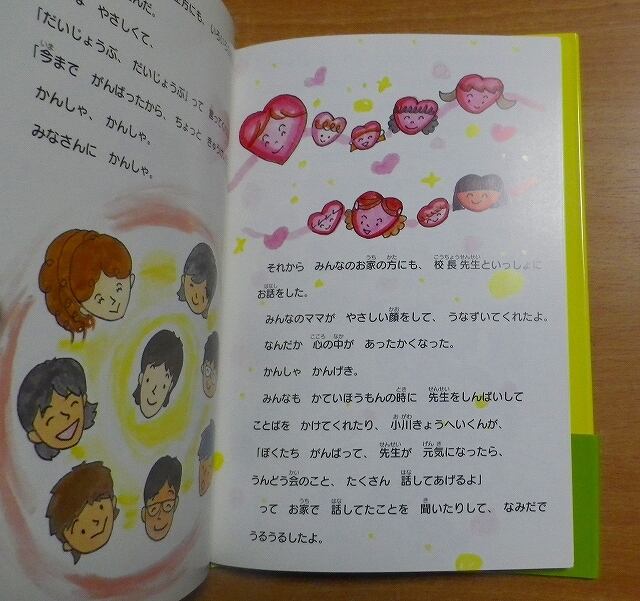 やさしくて、
「だいじょうぶ、だいじょうぶ」って
「今まで がんばったから、ちょっと
かんしゃ、かんしゃ。
みなさんに かんしゃ。
それから みんなのお家の方にも、校長先生といっしょに
お話をした。
みんなのママが やさしい顔をして、うなずいてくれたよ。
なんだか 心の中が あったかくなった。
かんしゃ かんげき。
みんなも かていほうもんの時に 先生をしんぱいして
ことばを かけてくれたり、小川きょうへいくんが、
「ぼくたち がんばって、先生が 元気になったら、
うんどう会のこと、たくさん 話してあげるよ」
って お家で 話してたことを 聞いたりして、なみだで
うるうるしたよ。